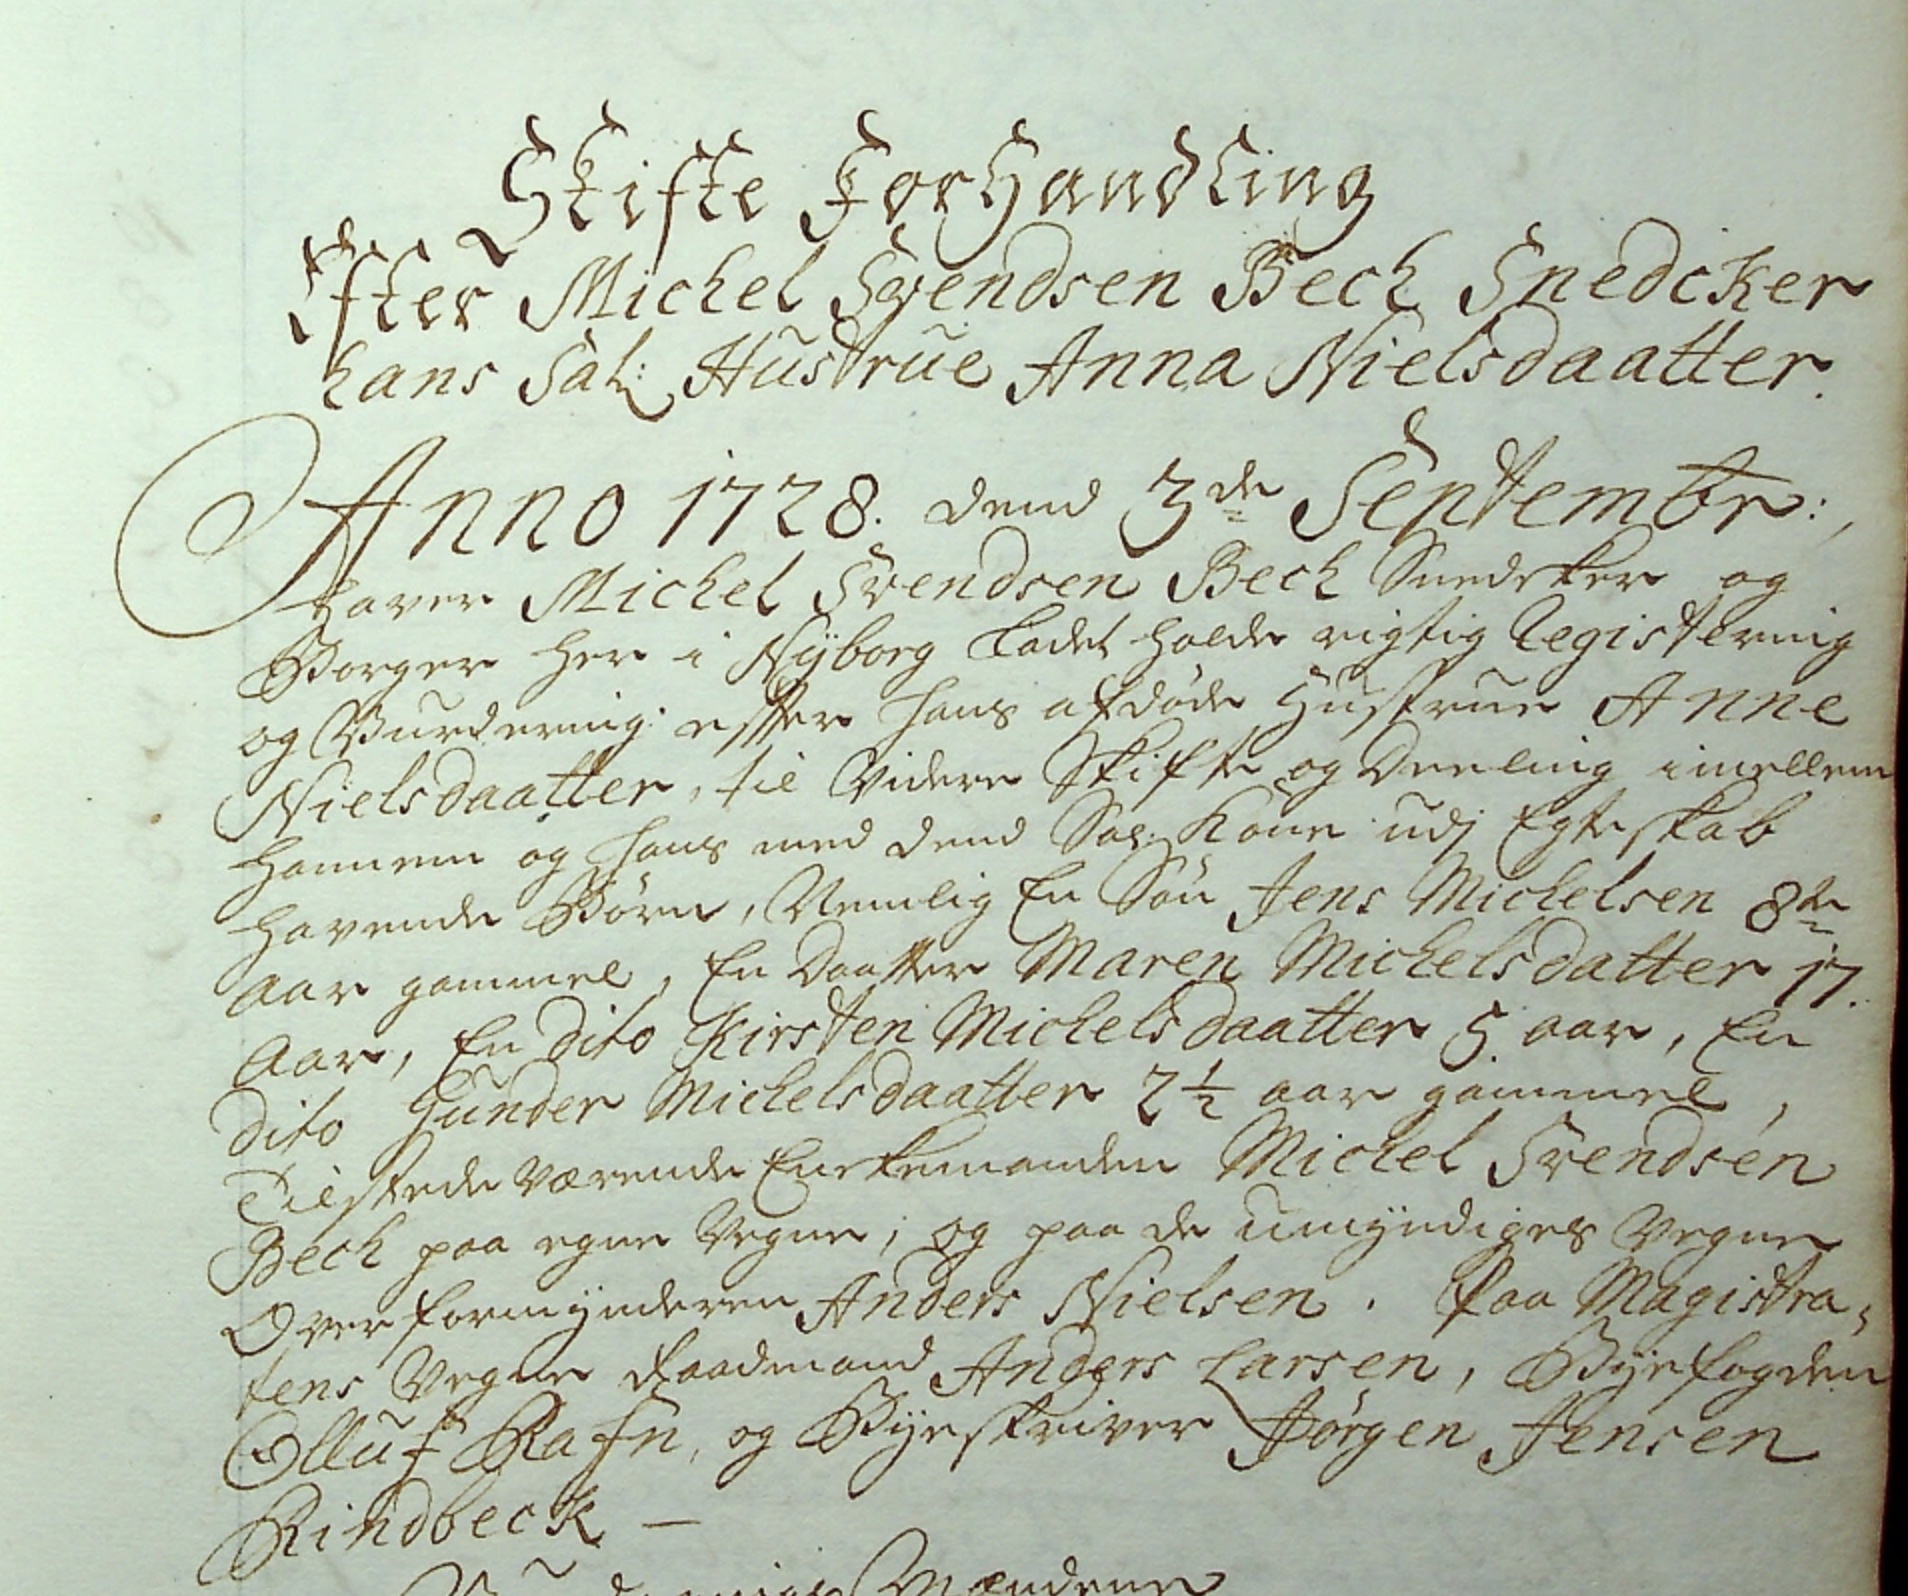 Skifte Forhandling
Efter Michel Svendsen Bech Snedcker
hans Sal: Hustrue Anna Nielsdaatter.
Anno 1728. dend 3de Septembr:,
haver Michel Svendsen Bech Snedcker og
Borger her i Nÿborg ladet holde rigtig Registering
og Vurdering efter hans afdøde Hustrue Anne
Nielsdaatter, til Videre Skifte og Deeling imellem
hannem og hans med dend Sal: Kone udj Egteskab
havende Børn, Nemlig En Søn Jens Michelsen 8de
aar gammel, En Daatter Maren Michelsdatter 17.
aar, En dito Kirsten Michelsdaatter 5. aar, En
dito Gunder Michelsdaatter 2 1/2 aar gammel,
Tilstede Værende Enckemanden Michel Svendsen
Bech paa egne Vegne, og paa de umÿndiges Vegne
Overformÿnderen Anders Nielsen. Paa Magistra,
tens Vegne Raadmand Anders Larsen, Bÿefogden
Olluf Rafn, og Bÿeskriver Jørgen Jensen
Rindbeck —
Mændene